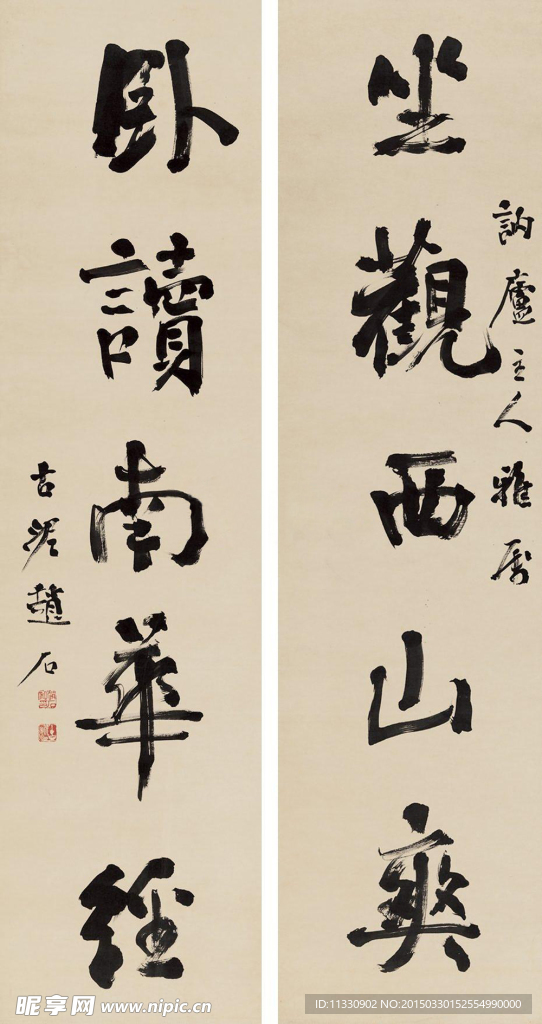 訥廬主人雅属
坐觀西山爽
卧讀南華經
古泥趙石
昵享网 www.nipic.cn
ID:11330902 NO:20150330152554990000